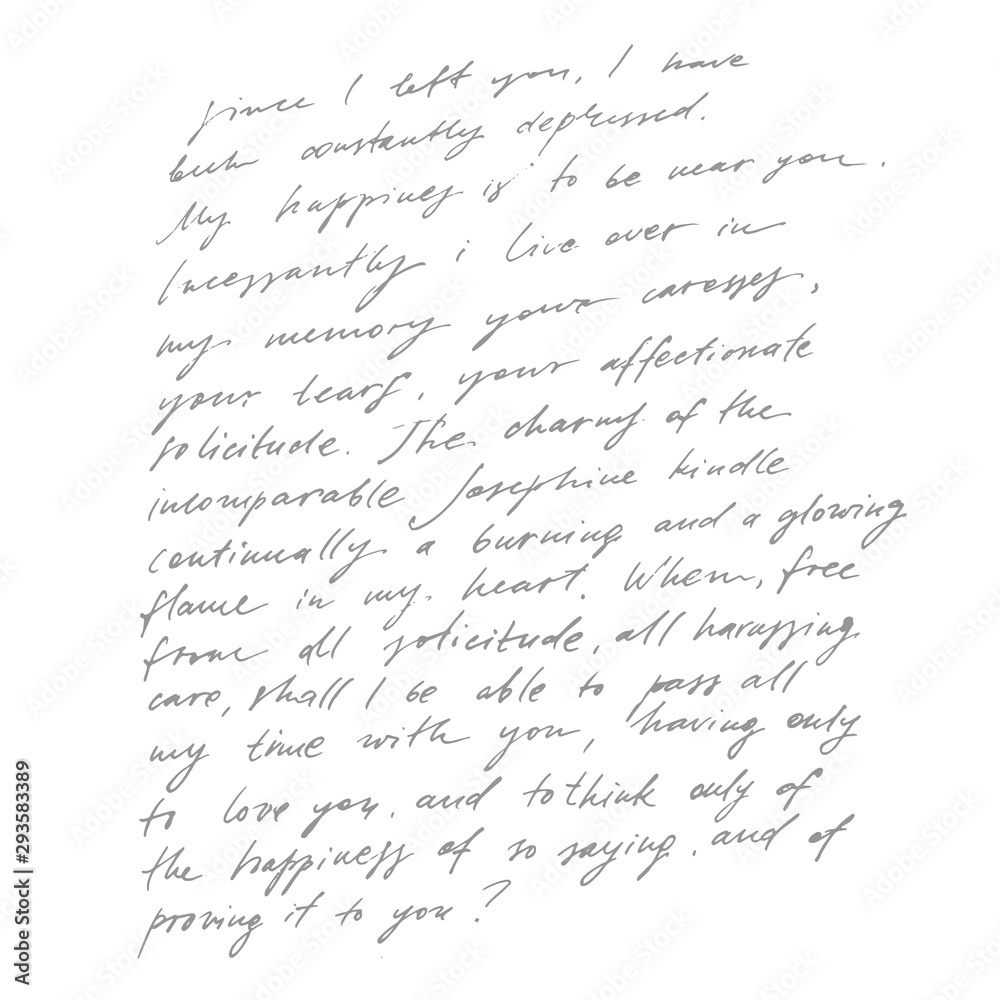 Since I left you, I have
been constantly depressed.
My happines is to be near you.
Incessantly i live over in
my memory your caresses,
your tears, your affectionate
solicitude. The charms of the
incomparable Josephine kindle
continually a burning and a glowing
flame in my heart. When, free
from all solicitude, all harassing
care, shall I be able to pass all
my time with you, having only
to love you, and to think only of
the happiness of so saying, and of
proving it to you?
Adobe Stock | #293583389